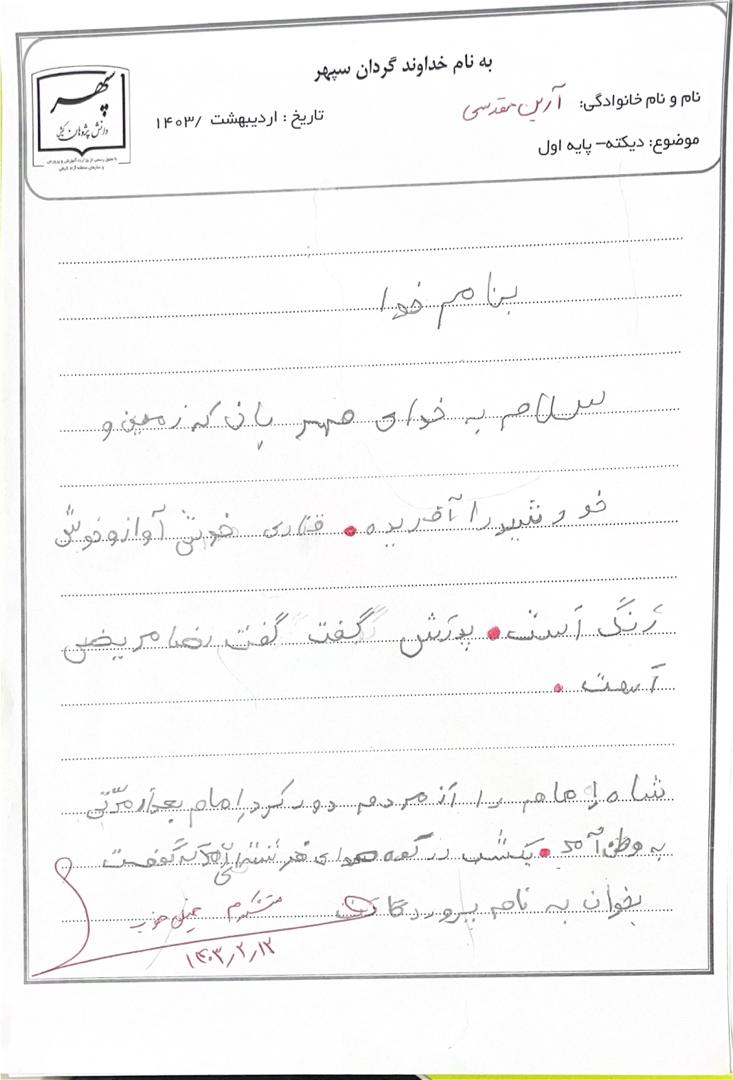 به نام خداوند گردان سپهر
نام و نام خانوادگی: آرین مقدسی
تاریخ : اردیبهشت /۱۴۰۳
موضوع: دیکته– پایه اول
سپهر
دانش پژوهان کیش
بنام خدا
سلام به خدای مهربان که زمین و
خورشید را آفریده. قناری خوش آواز و خوش
رنگ است. پدرش گفت گفت رضا مریض
است.
شاه امام را از مردم دور کرد امام بعد از مدّتی
به وطن آمد. یکشب در فرشته‌ای آمد گفت
بخوان به نام پروردگارت
متشکرم خوب
۱۴۰۳٫۲٫۱۲